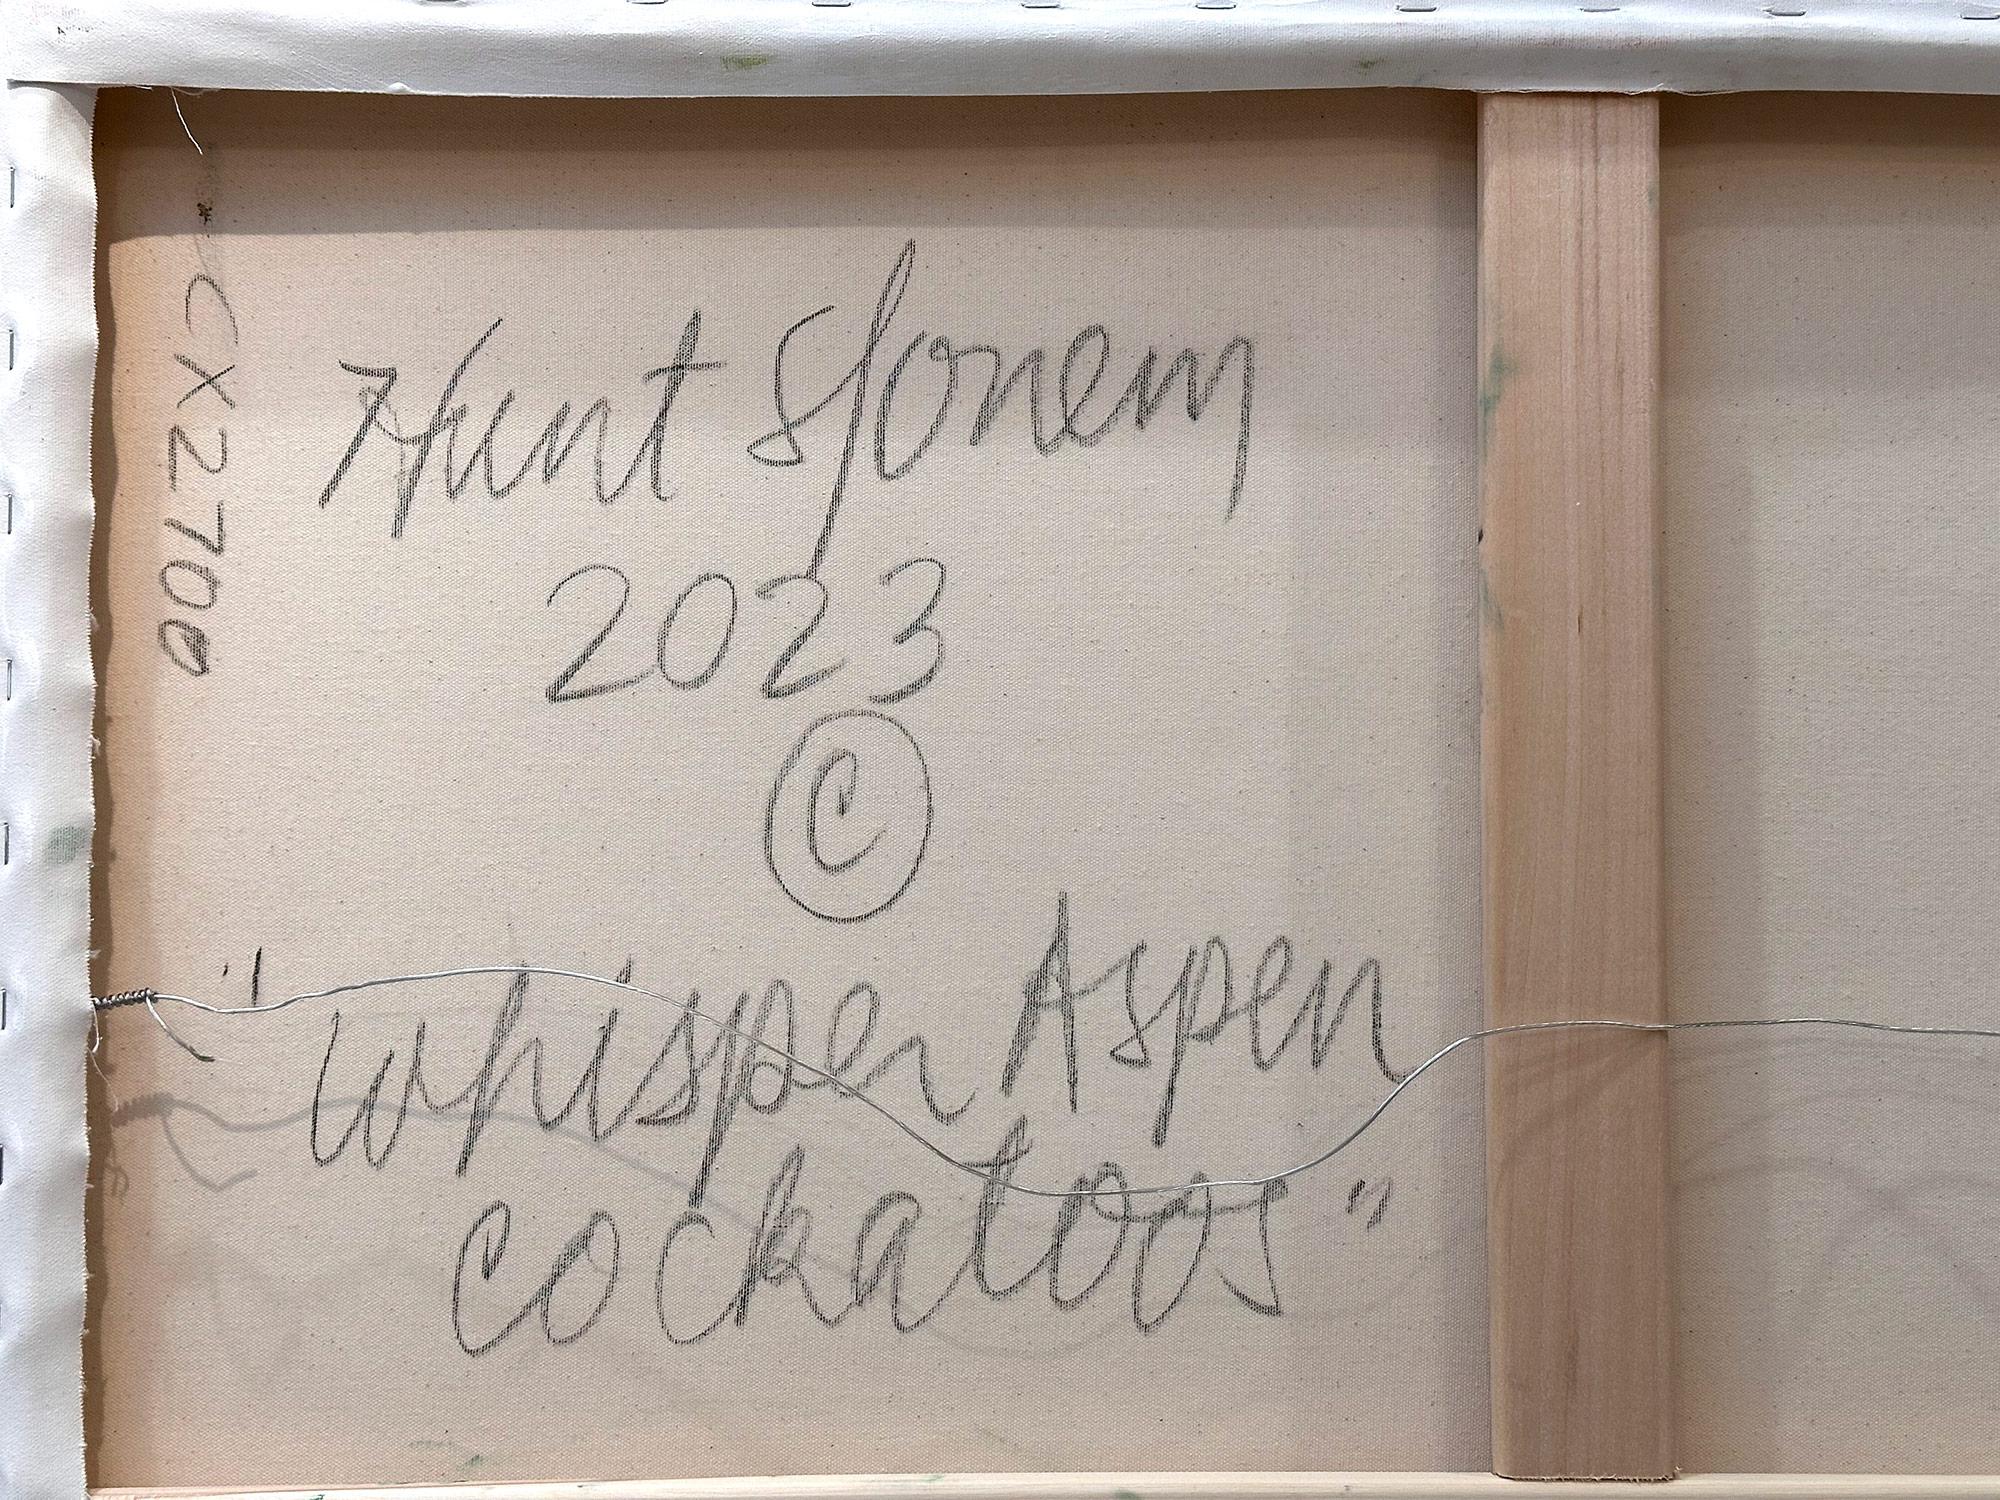 CX2700
Hunt Slonem
2023
©
"Whisper Aspen
Cockatoos"